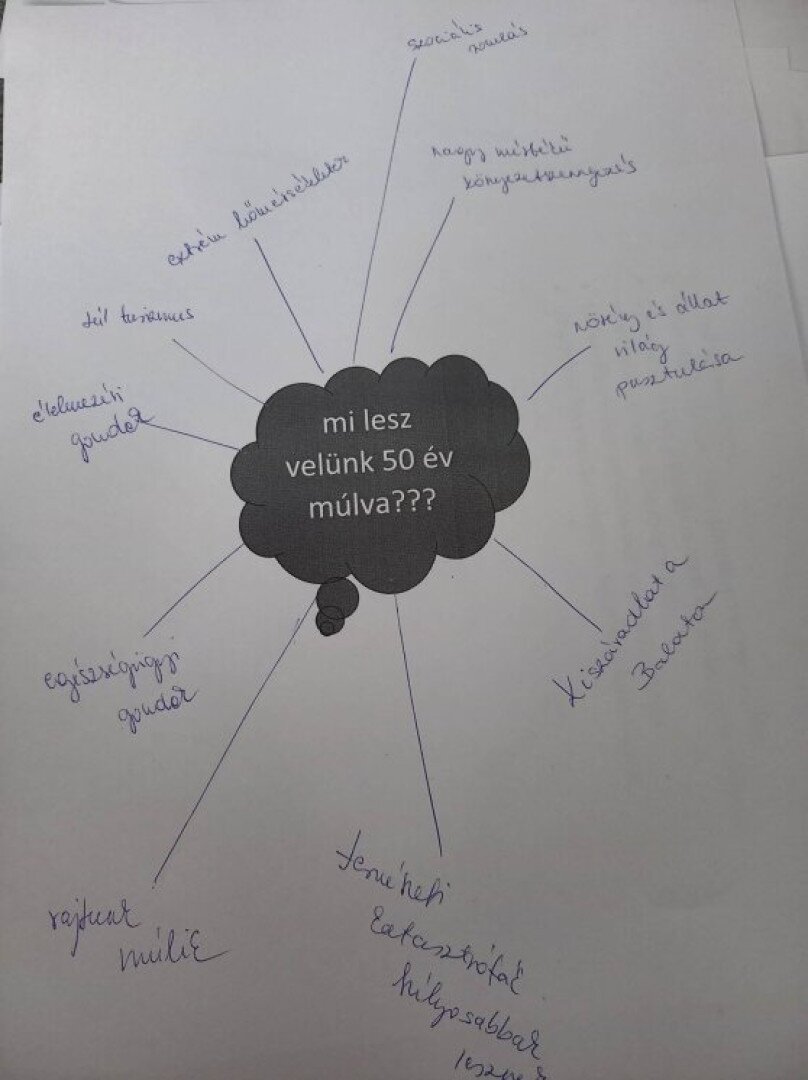 szociális
romlás
nagy mértékű
környezetszennyezés
extrém hőmérséklet
túl turizmus
növény és állat
világ
pusztulása
élelmezési
gondok
mi lesz
velünk 50 év
múlva???
egészségügyi
gondok
Kiszáradhat a
Balaton
rajtunk
múlik
természeti
katasztrófák
súlyosabbak
lesznek